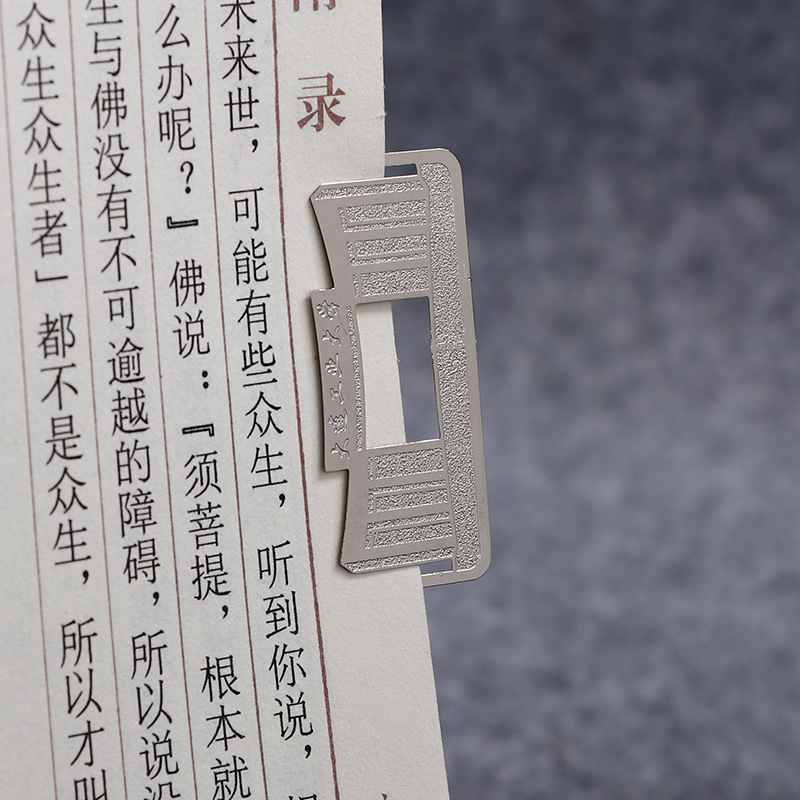 附录
未来世，可能有些众生，听到你说，
么办呢？』佛说：『须菩提，根本就
生与佛没有不可逾越的障碍，所以说没
众生众生者」都不是众生，所以才叫
大連工业大学